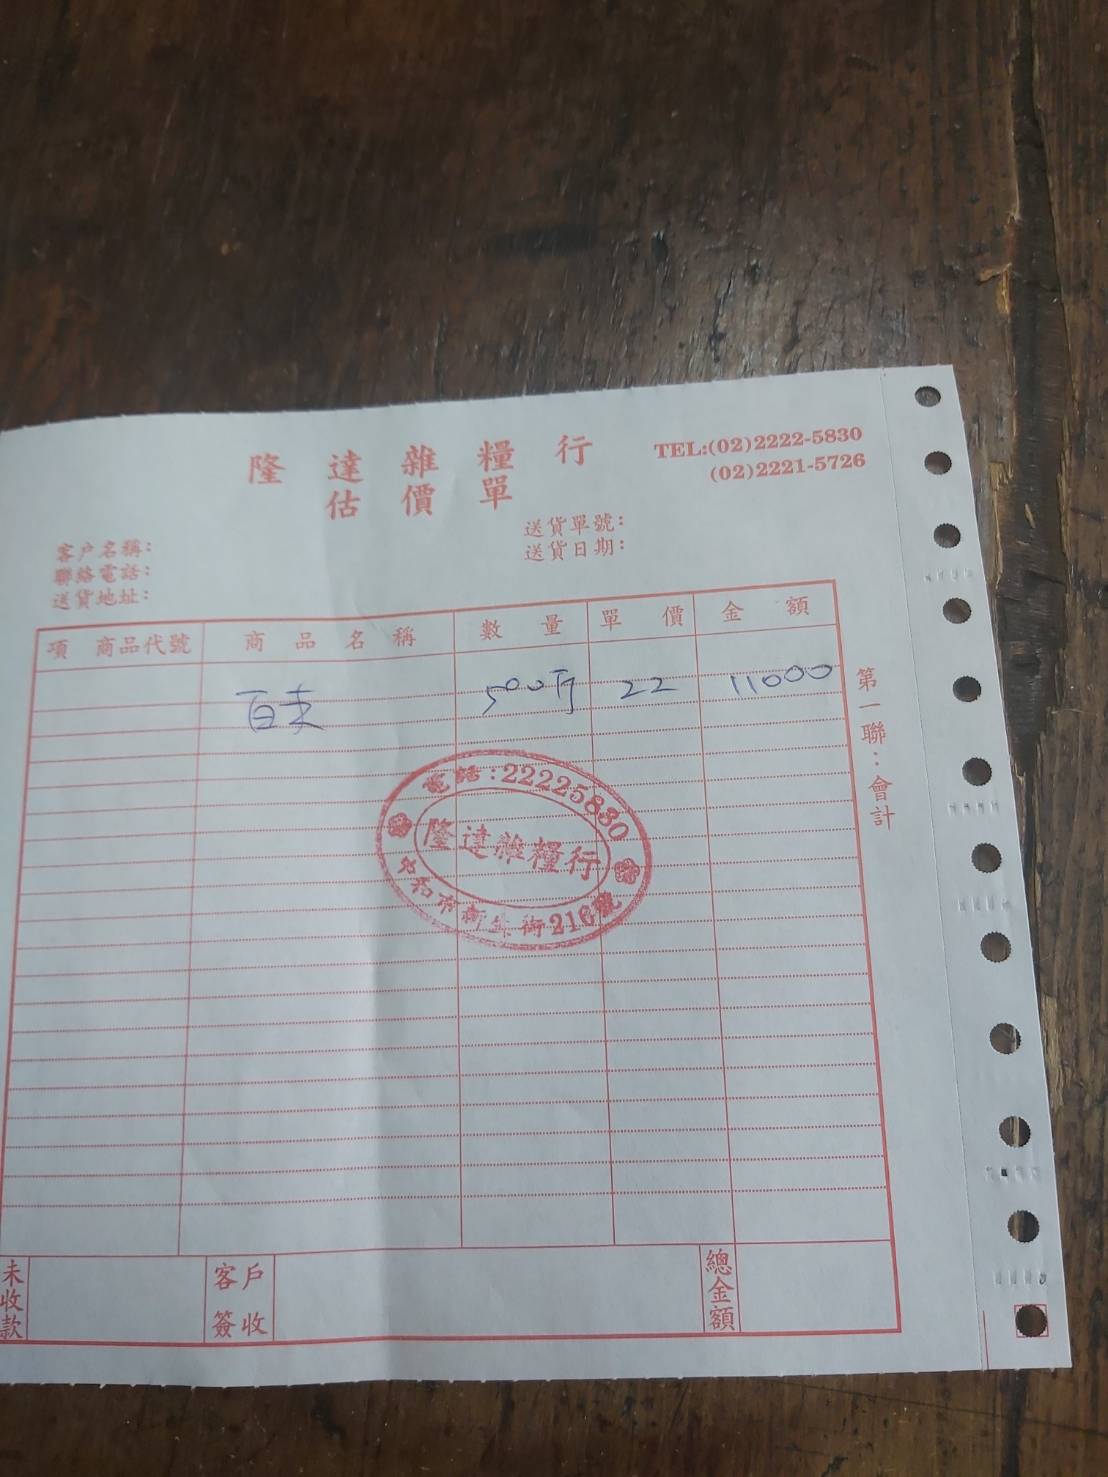 隆達雜糧行
估價單
TEL:(02)2222-5830
(02)2221-5726
送貨單號：
送貨日期：
客户名稱：
聯絡電話：
送貨地址：
項 商品代號 商品名稱 數量 單價 金額
500斤 22 11000
第一聯：會計
電話：22225830
隆達雜糧行
和市街216號
未收款
客戶簽收
總金額